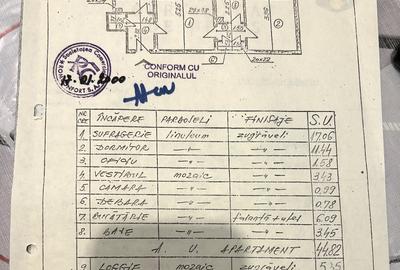 CONFORM CU
ORIGINALUL
2000
NR ÎNCĂPERE PARDOSELI FINISAJE S.U.
1. SUFRAGERIE linuleum zugrăveli 17.06
2. DORMITOR —"— —"— 11.44
3. OFICIU —"— —"— 1.58
4. VESTIBUL mozaic —"— 3.43
5. CAMARA —"— —"— 0,99
6. DEBARA —"— —"— 0.78
7. BUCĂTĂRIE —"— faianță+ulei 6.09
8. BAIE —"— —"— 3.45
A. U. APARTAMENT 44.82
9 LOGGIE mozaic zugrăveli 5.35